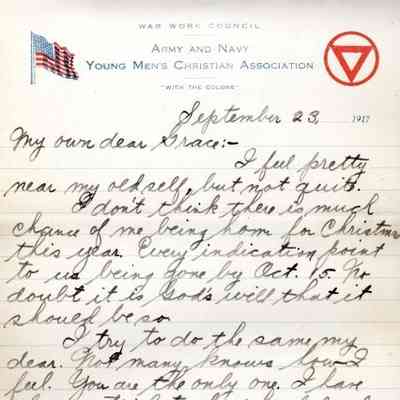 WAR WORK COUNCIL
ARMY AND NAVY
YOUNG MEN'S CHRISTIAN ASSOCIATION
"WITH THE COLORS"
September 23, 1917
My own dear Grace:-
I feel pretty
near my old self, but not quite.
I don't think there is much
chance of me being hom for Christmas
this year. Every indication point
to us being gone by Oct. 15. No
doubt it is God's will that it
should be so
I try to do the same my
dear. Not many knows how I
feel. You are the only one. I have